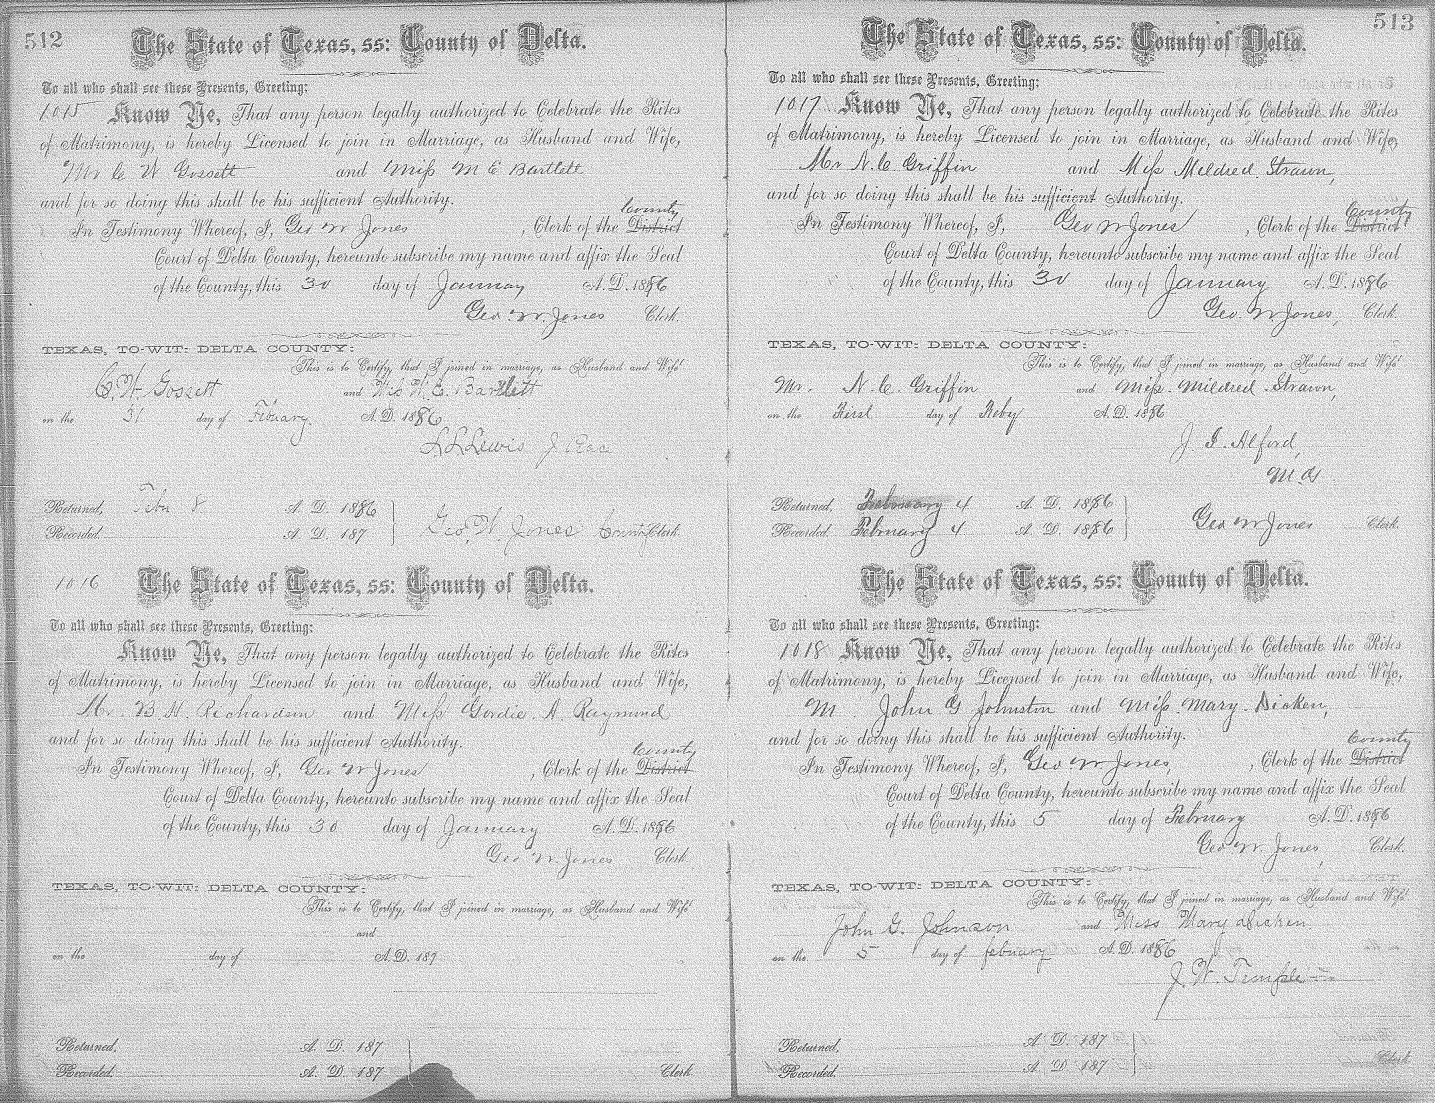 512
The State of Texas, ss: County of Delta.
To all who shall see these Presents, Greeting:
1015 Know Ye, That any person legally authorized to Celebrate the Rites
of Matrimony, is hereby Licensed to join in Marriage, as Husband and Wife,
Mr C W Gossett and Miss M E Bartlett
and for so doing this shall be his sufficient Authority.
County
In Testimony Whereof, I, Geo W Jones, Clerk of the District
Court of Delta County, hereunto subscribe my name and affix the Seal
of the County, this 30 day of January A. D. 1886
Geo. W. Jones Clerk.
TEXAS, TO-WIT: DELTA COUNTY:
This is to Certify, that I joined in marriage, as Husband and Wife
C. W. Gossett and E. Bartlett
on the 31 day of Febuary. A. D. 1886
L L Lewis J
Returned, Feb 8 A. D. 1886
Recorded. A. D. 187
Geo. W. Jones County Clerk
1016 The State of Texas, ss: County of Delta.
To all who shall see these Presents, Greeting:
Know Ye, That any person legally authorized to Celebrate the Rites
of Matrimony, is hereby Licensed to join in Marriage, as Husband and Wife,
Mr. B. H. Richardson and Miss Gordie. A. Raymond
and for so doing this shall be his sufficient Authority.
County
In Testimony Whereof, I, Geo W Jones, Clerk of the District
Court of Delta County, hereunto subscribe my name and affix the Seal
of the County, this 30 day of January A. D. 1886
Geo W. Jones Clerk.
TEXAS, TO-WIT: DELTA COUNTY:
This is to Certify, that I joined in marriage, as Husband and Wife
and
on the day of A. D. 187
Returned, A. D. 187
Recorded. A. D. 187
Clerk
513
The State of Texas, ss: County of Delta.
To all who shall see these Presents, Greeting:
1017 Know Ye, That any person legally authorized to Celebrate the Rites
of Matrimony, is hereby Licensed to join in Marriage, as Husband and Wife,
Mr N. C Griffin and Miss Mildred. Strawn,
and for so doing this shall be his sufficient Authority.
County
In Testimony Whereof, I, Geo W Jones, Clerk of the District
Court of Delta County, hereunto subscribe my name and affix the Seal
of the County, this 30 day of January A. D. 1886
Geo. W Jones, Clerk.
TEXAS, TO-WIT: DELTA COUNTY:
This is to Certify, that I joined in marriage, as Husband and Wife
Mr. N. C. Griffin and Miss. Mildred. Strawn,
on the First day of Feby A. D. 1886
J. I. Alford,
M. G
Returned, February 4 A. D. 1886
Recorded February 4 A. D. 1886
Geo W Jones Clerk.
The State of Texas, ss: County of Delta.
To all who shall see these Presents, Greeting:
1018 Know Ye, That any person legally authorized to Celebrate the Rites
of Matrimony, is hereby Licensed to join in Marriage, as Husband and Wife,
M John G Johnston and Miss. Mary. Dicken,
and for so doing this shall be his sufficient Authority.
County
In Testimony Whereof, I, Geo W Jones, Clerk of the District
Court of Delta County, hereunto subscribe my name and affix the Seal
of the County, this 5 day of February A. D. 1886
Geo W. Jones, Clerk.
TEXAS, TO-WIT: DELTA COUNTY:
This is to Certify, that I joined in marriage, as Husband and Wife
John G. Johnson and Miss Mary Dicken
on the 5 day of february A. D. 1886
J. W. Temple
Returned, A. D. 187
Recorded. A. D. 187
Clerk